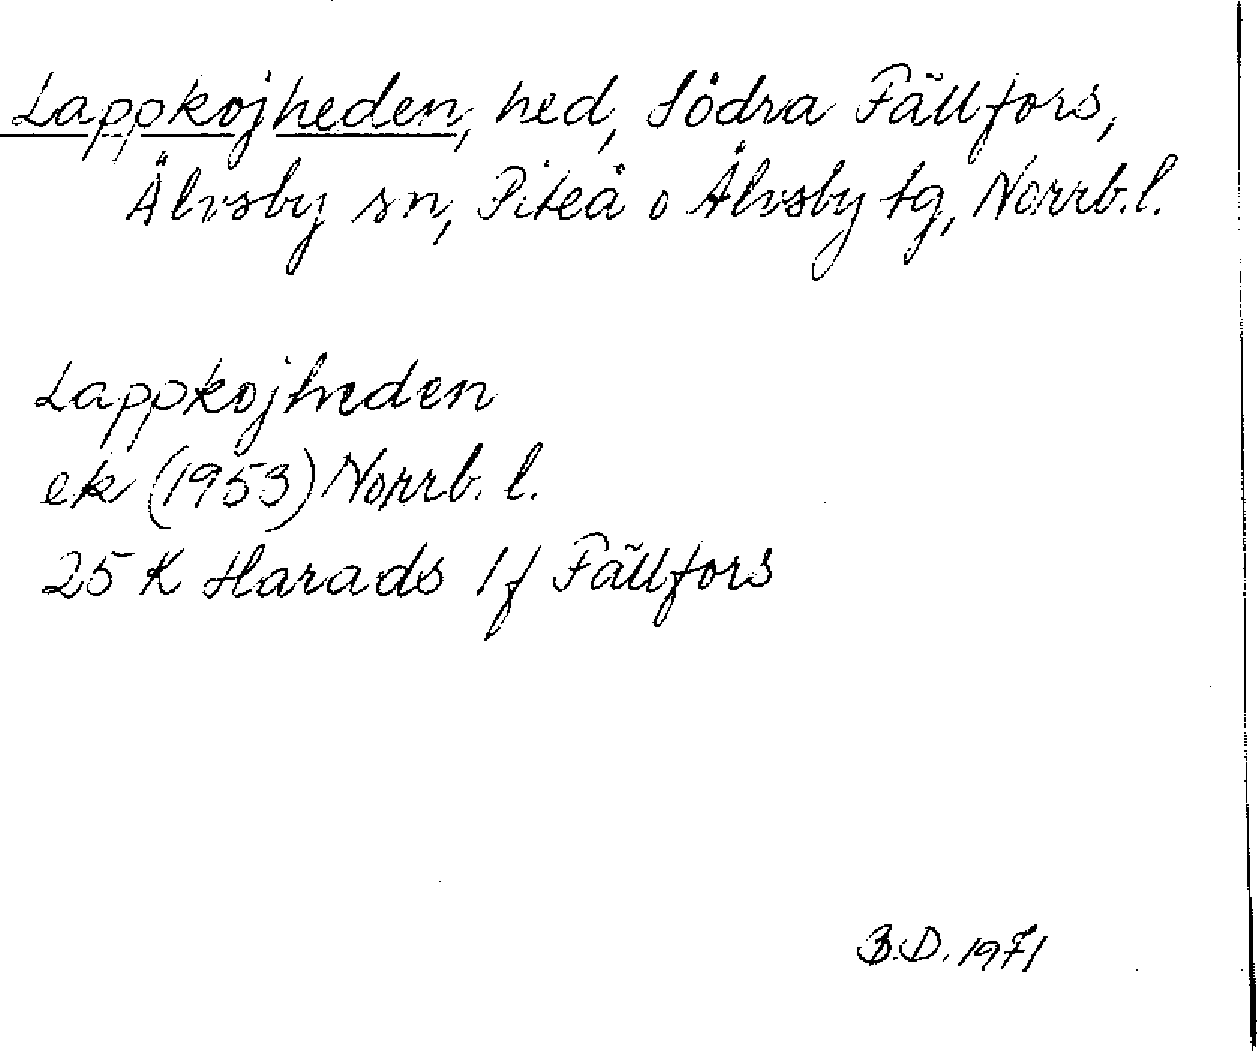 Lappkojheden, hed, Södra Fällfors,
Älvsby sn, Piteå o Älvsby tg, Norrb.l.
Lappkojheden
ek (1953) Norrb. l.
25 K Harads 1f Fällfors
B.D. 1971